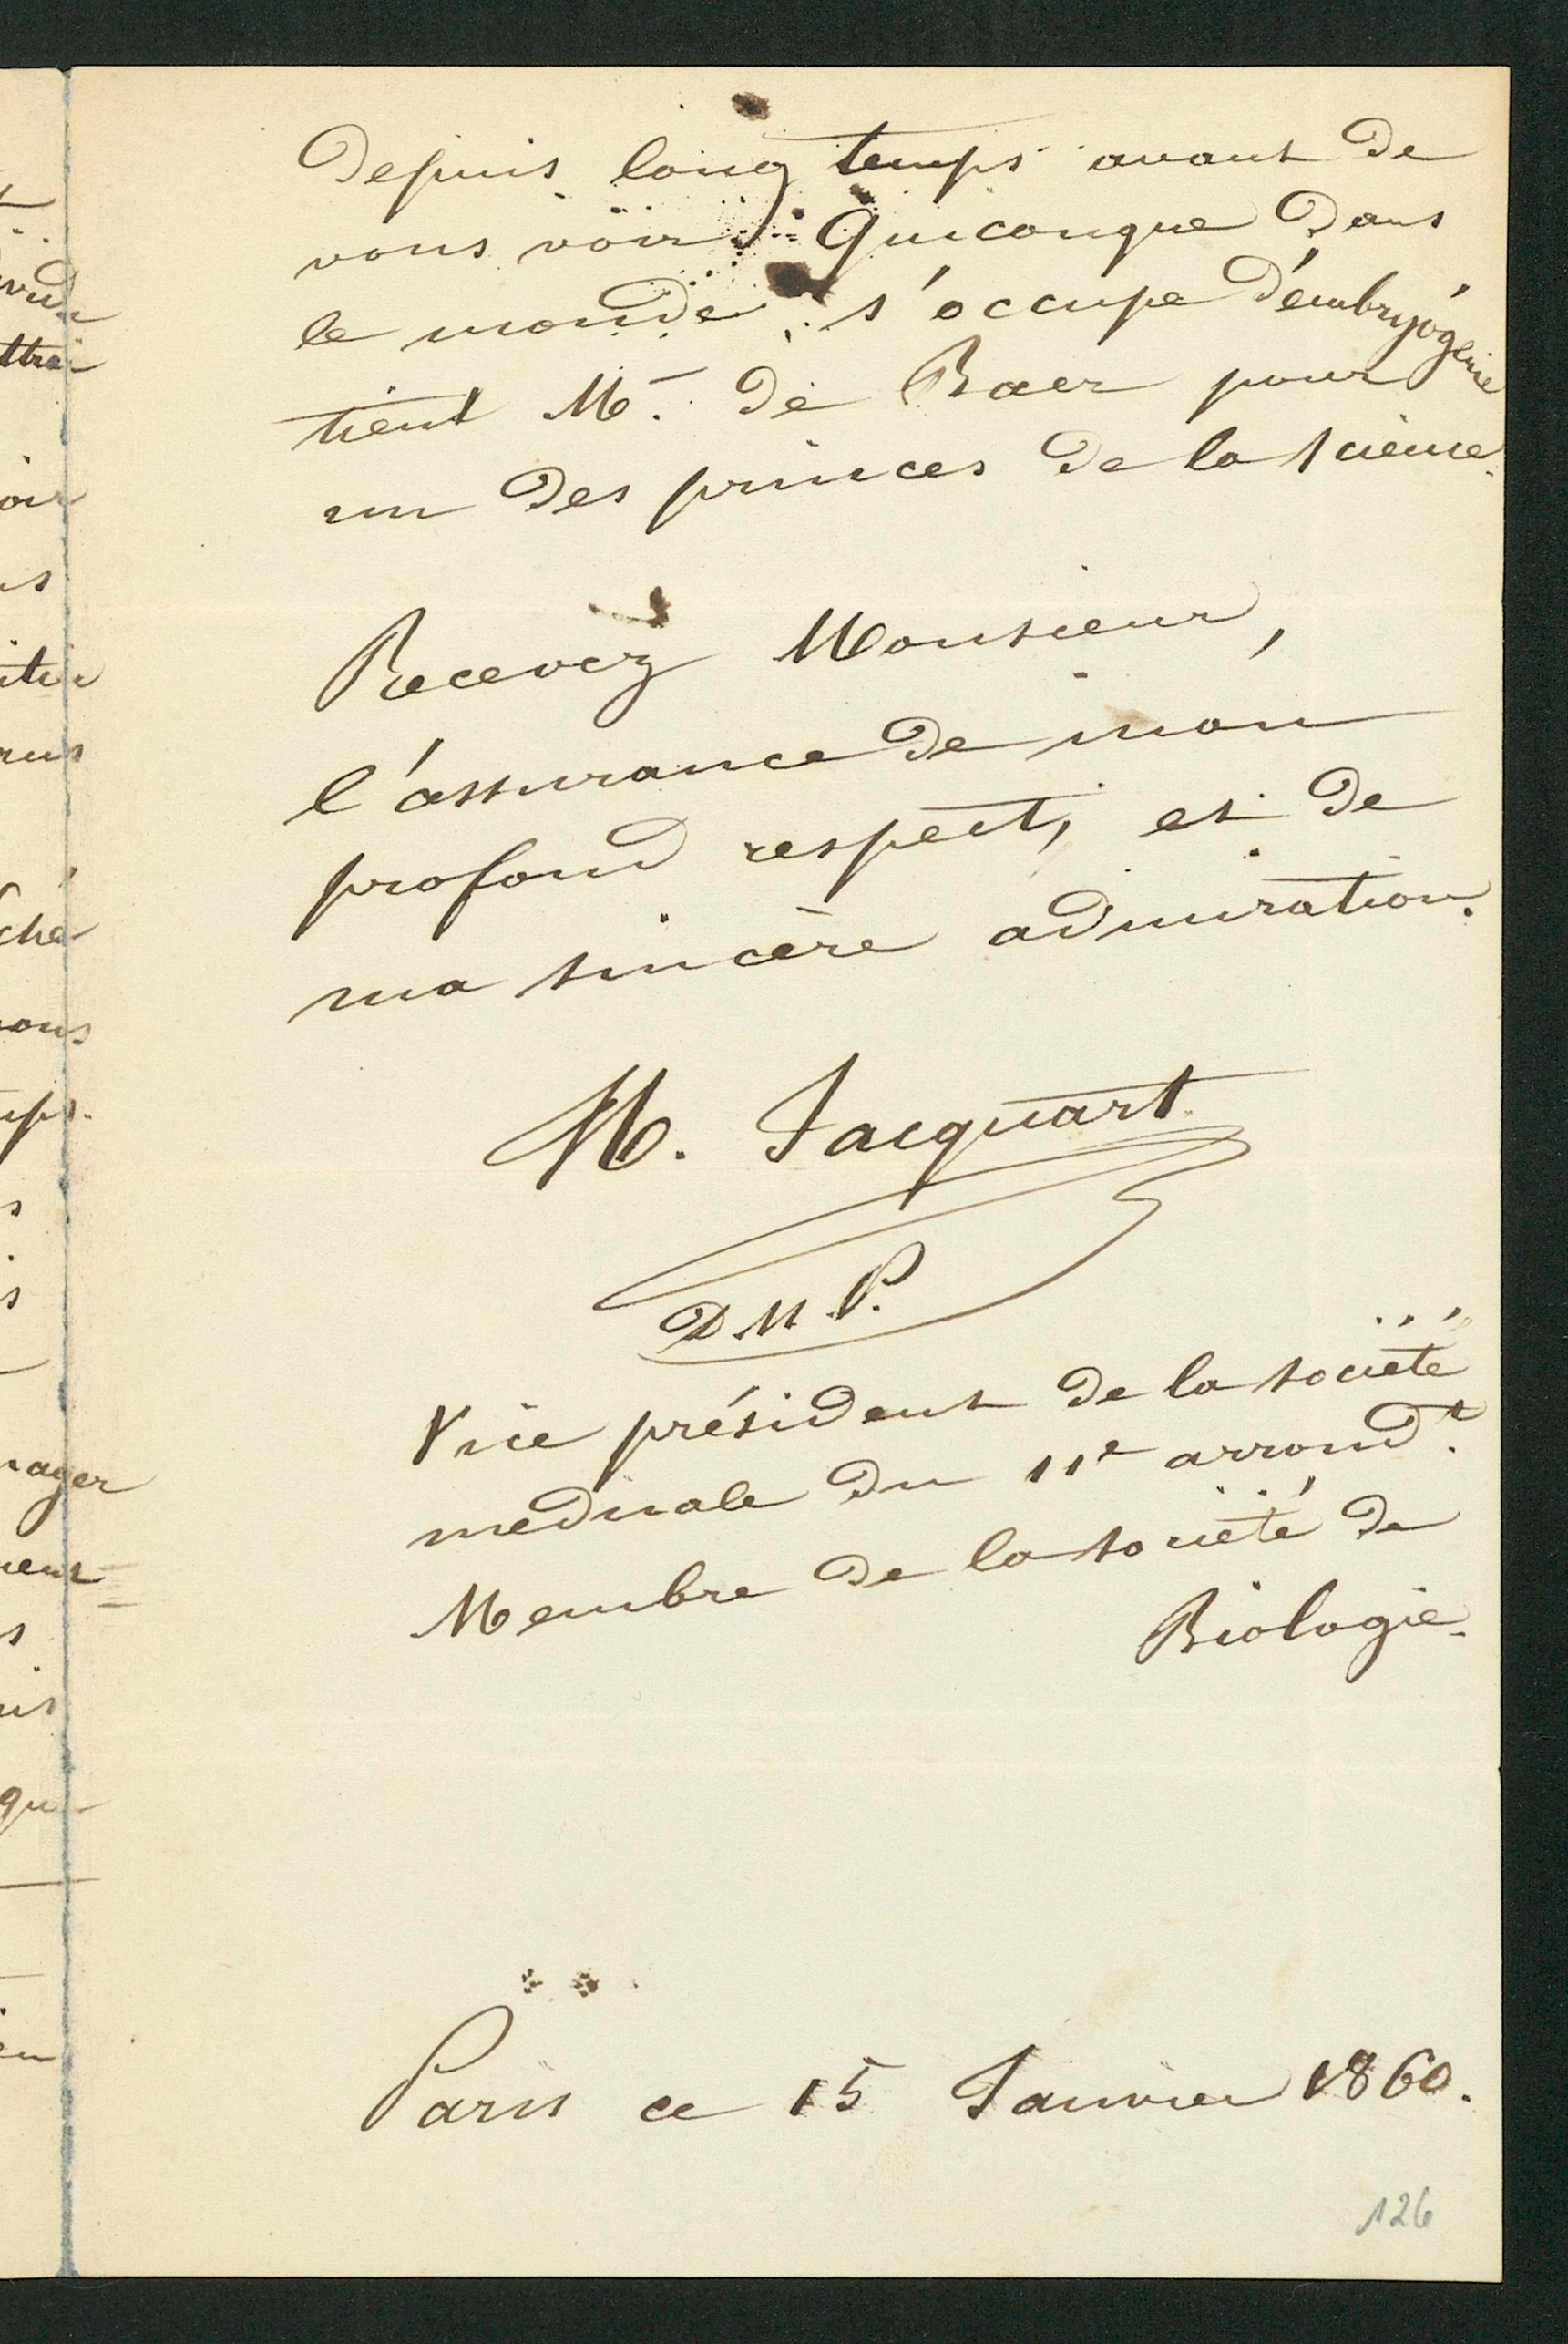 depuis long temps avant de
vous voir. Quiconque dans
le monde s'occupe d'embryogénie
tient Mr. de Baer pour
un des princes de la science.
Recevez Monsieur,
l'assurance de mon
profond respect, et de
ma sincère admiration.
H. Jacquart
D. M. P.
Vice président de la société
médicale du 11e arrondt.
Membre de la société de
Biologie.
Paris ce 15 Janvier 1860.
126